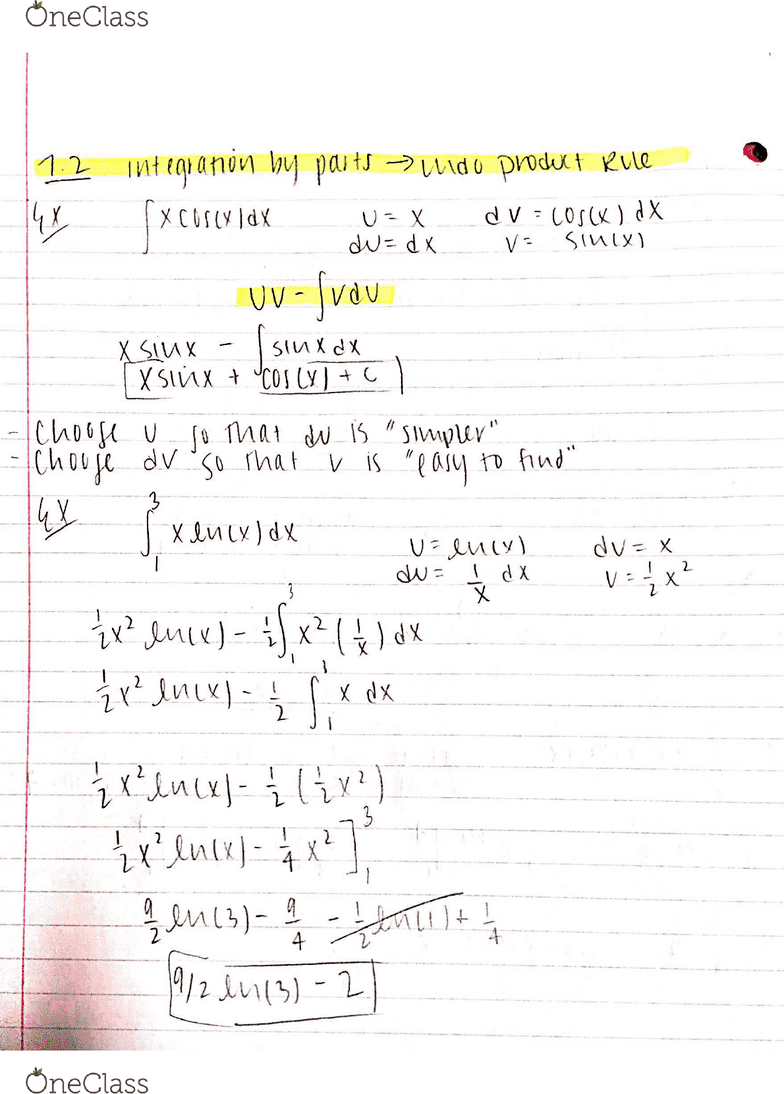 OneClass
1.2 integration by parts → undo product Rule
Ex ∫xcos(x)dx u = x dv = cos(x) dx
du = dx v = sin(x)
uv - ∫vdu
xsinx - ∫sinxdx
xsinx + cos(x) + c
- Choose u so that du is "simpler"
- Choose dv so that v is "easy to find"
Ex ∫₁³ x ln(x) dx u = ln(x) dv = x
du = 1/x dx v = 1/2 x²
1/2 x² ln(x) - 1/2 ∫₁³ x² (1/x) dx
1/2 x² ln(x) - 1/2 ∫₁³ x dx
1/2 x² ln(x) - 1/2 (1/2 x²)
1/2 x² ln(x) - 1/4 x² ]₁³
9/2 ln(3) - 9/4 - 1/2 ln(1) + 1/4
9/2 ln(3) - 2
OneClass